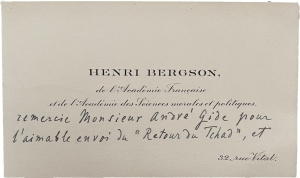 HENRI BERGSON,
de l'Académie Française
et de l'Académie des Sciences morales et politiques,
remercie Monsieur André Gide pour
l'aimable envoi du "Retour du Tchad", et
32, rue Vital.